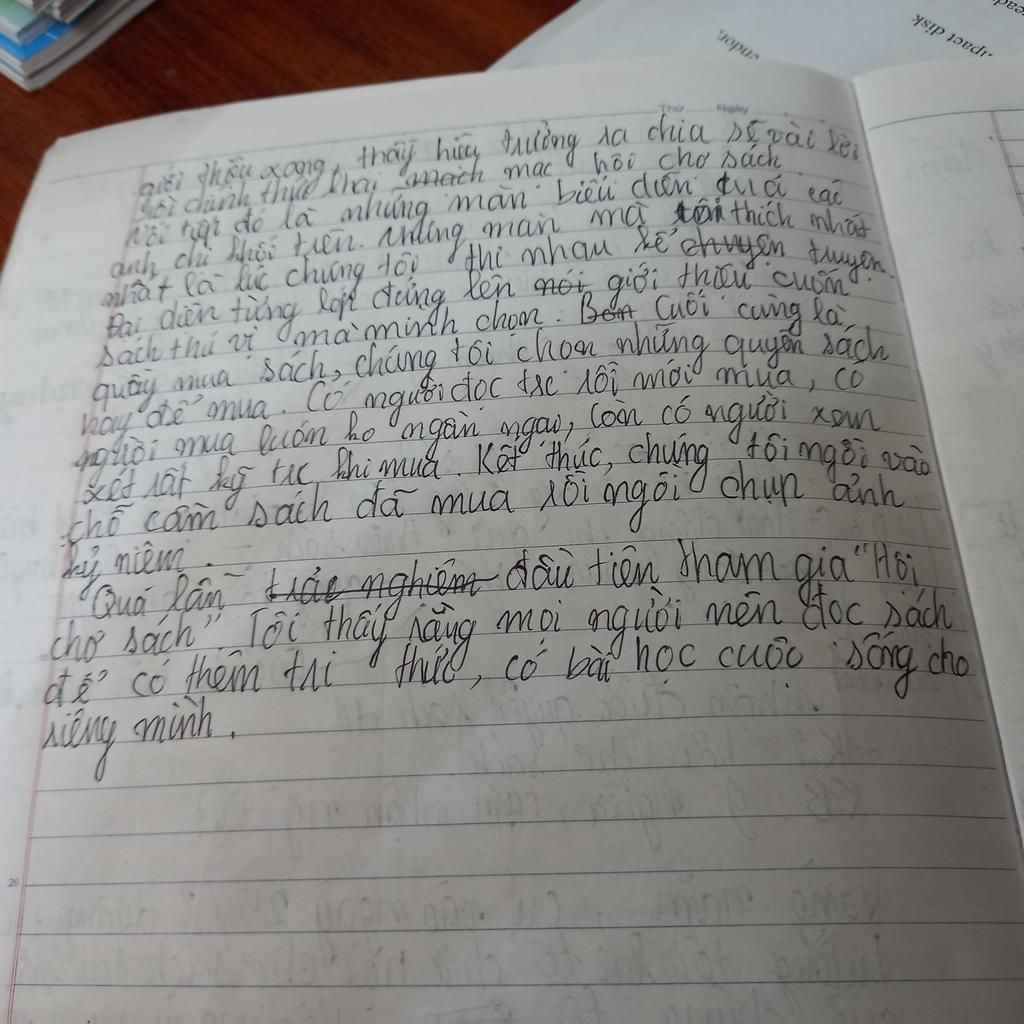 endor,
pact disk
Thứ ....... Ngày .......
giới thiệu xong, thầy hiệu trưởng ra chia sẻ vài lời
rồi chính thức khai mạch mạc hội chợ sách
nổi bật đó là những màn biểu diễn của các
anh chị khối trên. Những màn mà tôi thích nhất
nhất là lúc chúng tôi thi nhau kể chuyện truyện.
Đại diện từng lớp đứng lên nói giới thiệu cuốn
sách thú vị mà mình chọn. Bên Cuối cùng là
quầy mua sách, chúng tôi chọn những quyển sách
hay để mua. Có người đọc trc rồi mới mua, có
người mua luôn ko ngần ngại, còn có người xem
xét rất kỹ trc khi mua. Kết thúc, chúng tôi ngồi vào
chỗ cầm sách đã mua rồi ngồi chụp ảnh
kỷ niệm.
Quá lần trải nghiệm đầu tiên tham gia "Hội
chợ sách" Tôi thấy rằng mọi người nên đọc sách
để có thêm tri thức, có bài học cuộc sống cho
riêng mình.
20